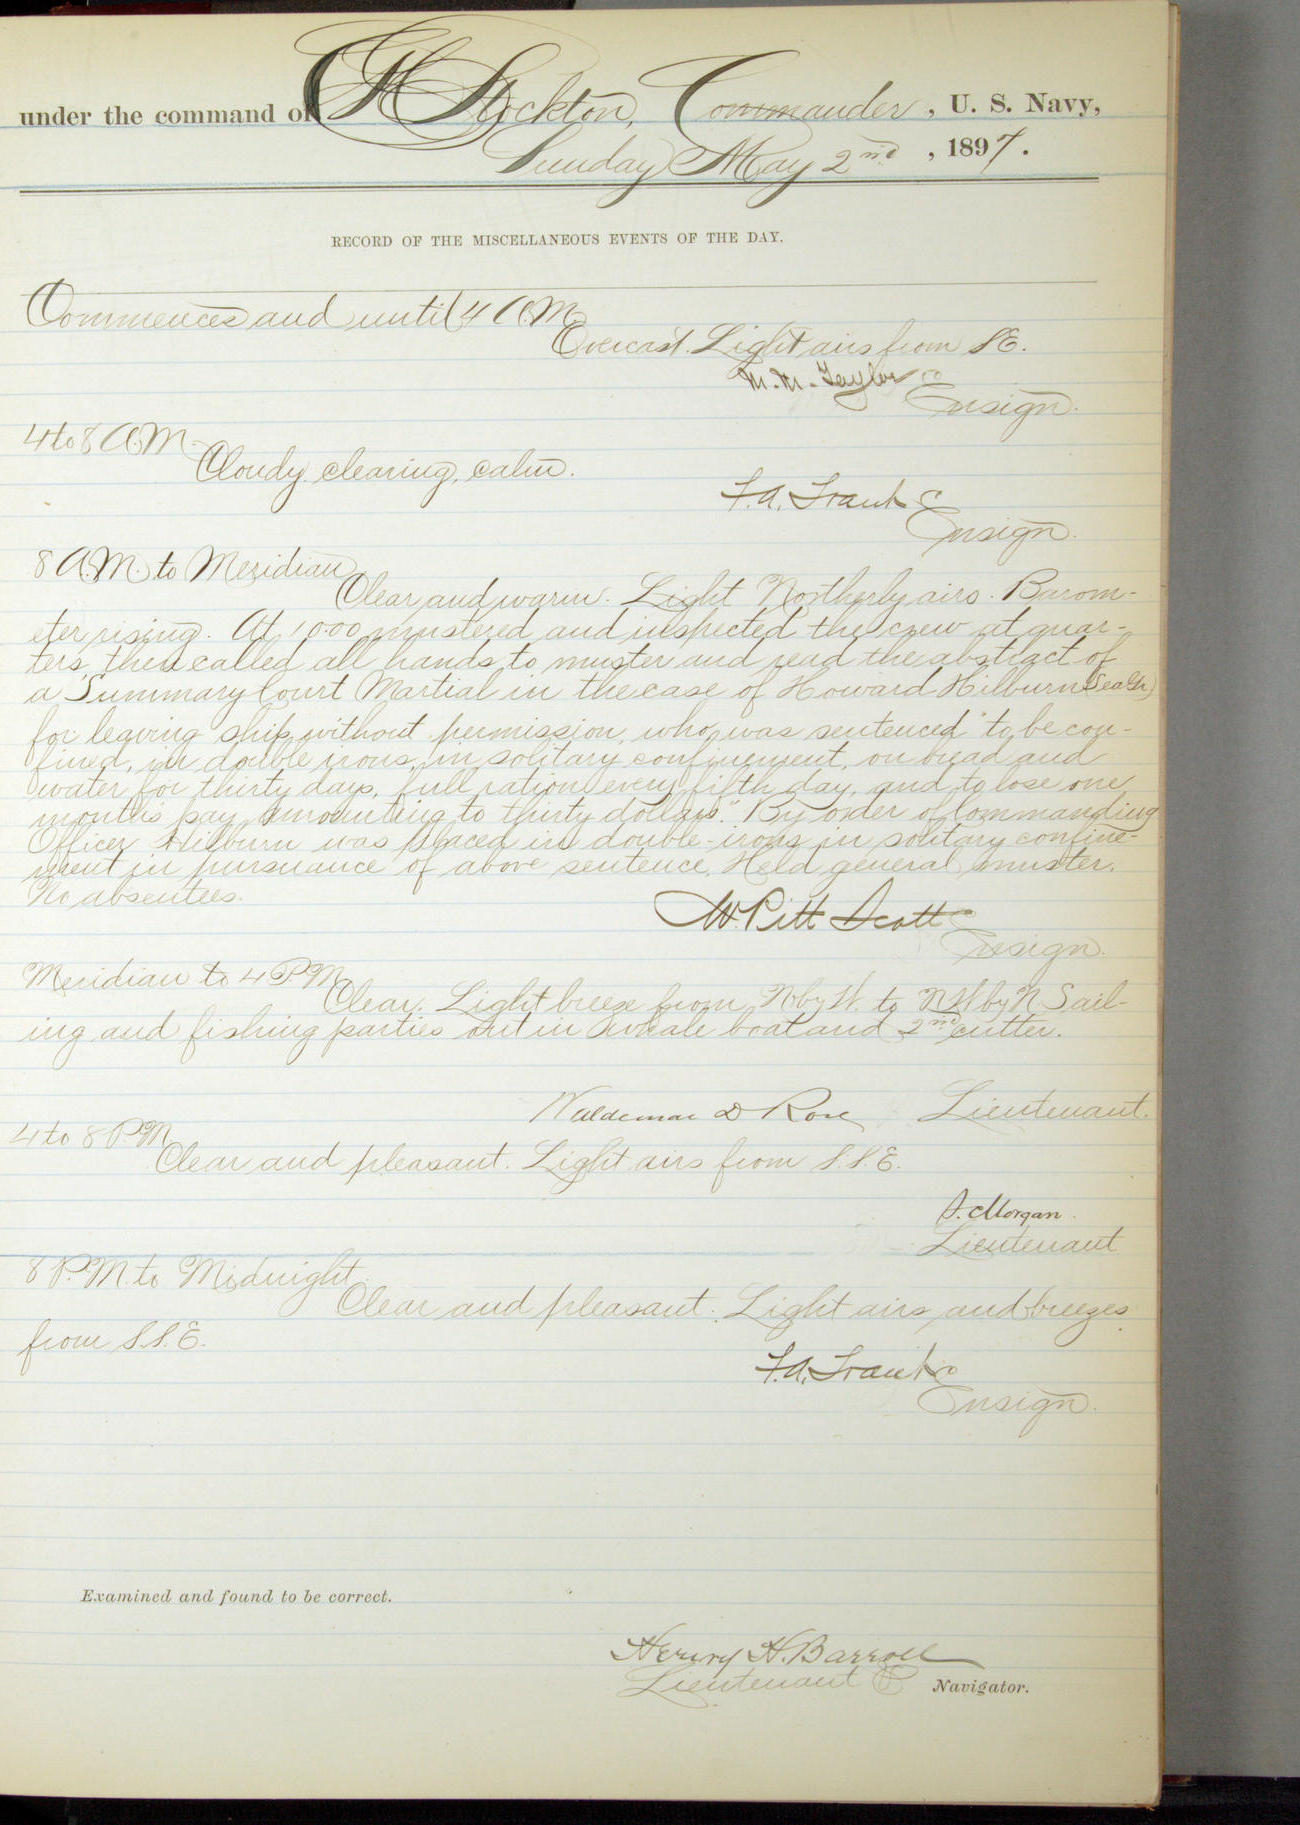 under the command of C H Stockton, Commander, U. S. Navy,
Sunday May 2nd, 1897.
RECORD OF THE MISCELLANEOUS EVENTS OF THE DAY.
Commences and until 4 A.M.
Overcast. Light airs from SE.
M. M. Taylor
Ensign.
4 to 8 A.M.
Cloudy, clearing, calm.
F. A. Traut
Ensign.
8 A.M. to Meridian
Clear and warm. Light Northerly airs. Barom-
eter rising. At 10.00 mustered and inspected the crew at quar-
ters, then called all hands to muster and read the abstract of
a Summary Court Martial in the case of Howard Hilburn (Sea 2n)
for leaving ship without permission, who was sentenced "to be con-
fined, in double irons, in solitary confinement, on bread and
water for thirty days, full ration every fifth day, and to lose one
month's pay amounting to thirty dollars." By order of Commanding
Officer Hilburn was placed in double-irons in solitary confine-
ment in pursuance of above sentence. Held general muster.
No absentees.
W. Pitt Scott
Ensign.
Meridian to 4 P.M.
Clear. Light breeze from N by W. to NW by N Sail-
ing and fishing parties out in whale boat and 2nd cutter.
Waldemar D Rose Lieutenant.
4 to 8 P.M.
Clear and pleasant. Light airs from S.S.E.
S. Morgan.
Lieutenant
8 P.M. to Midnight.
Clear and pleasant. Light airs and breezes
from S.S.E.
F. A. Traut
Ensign.
Examined and found to be correct.
Henry H. Barroll
Lieutenant Navigator.